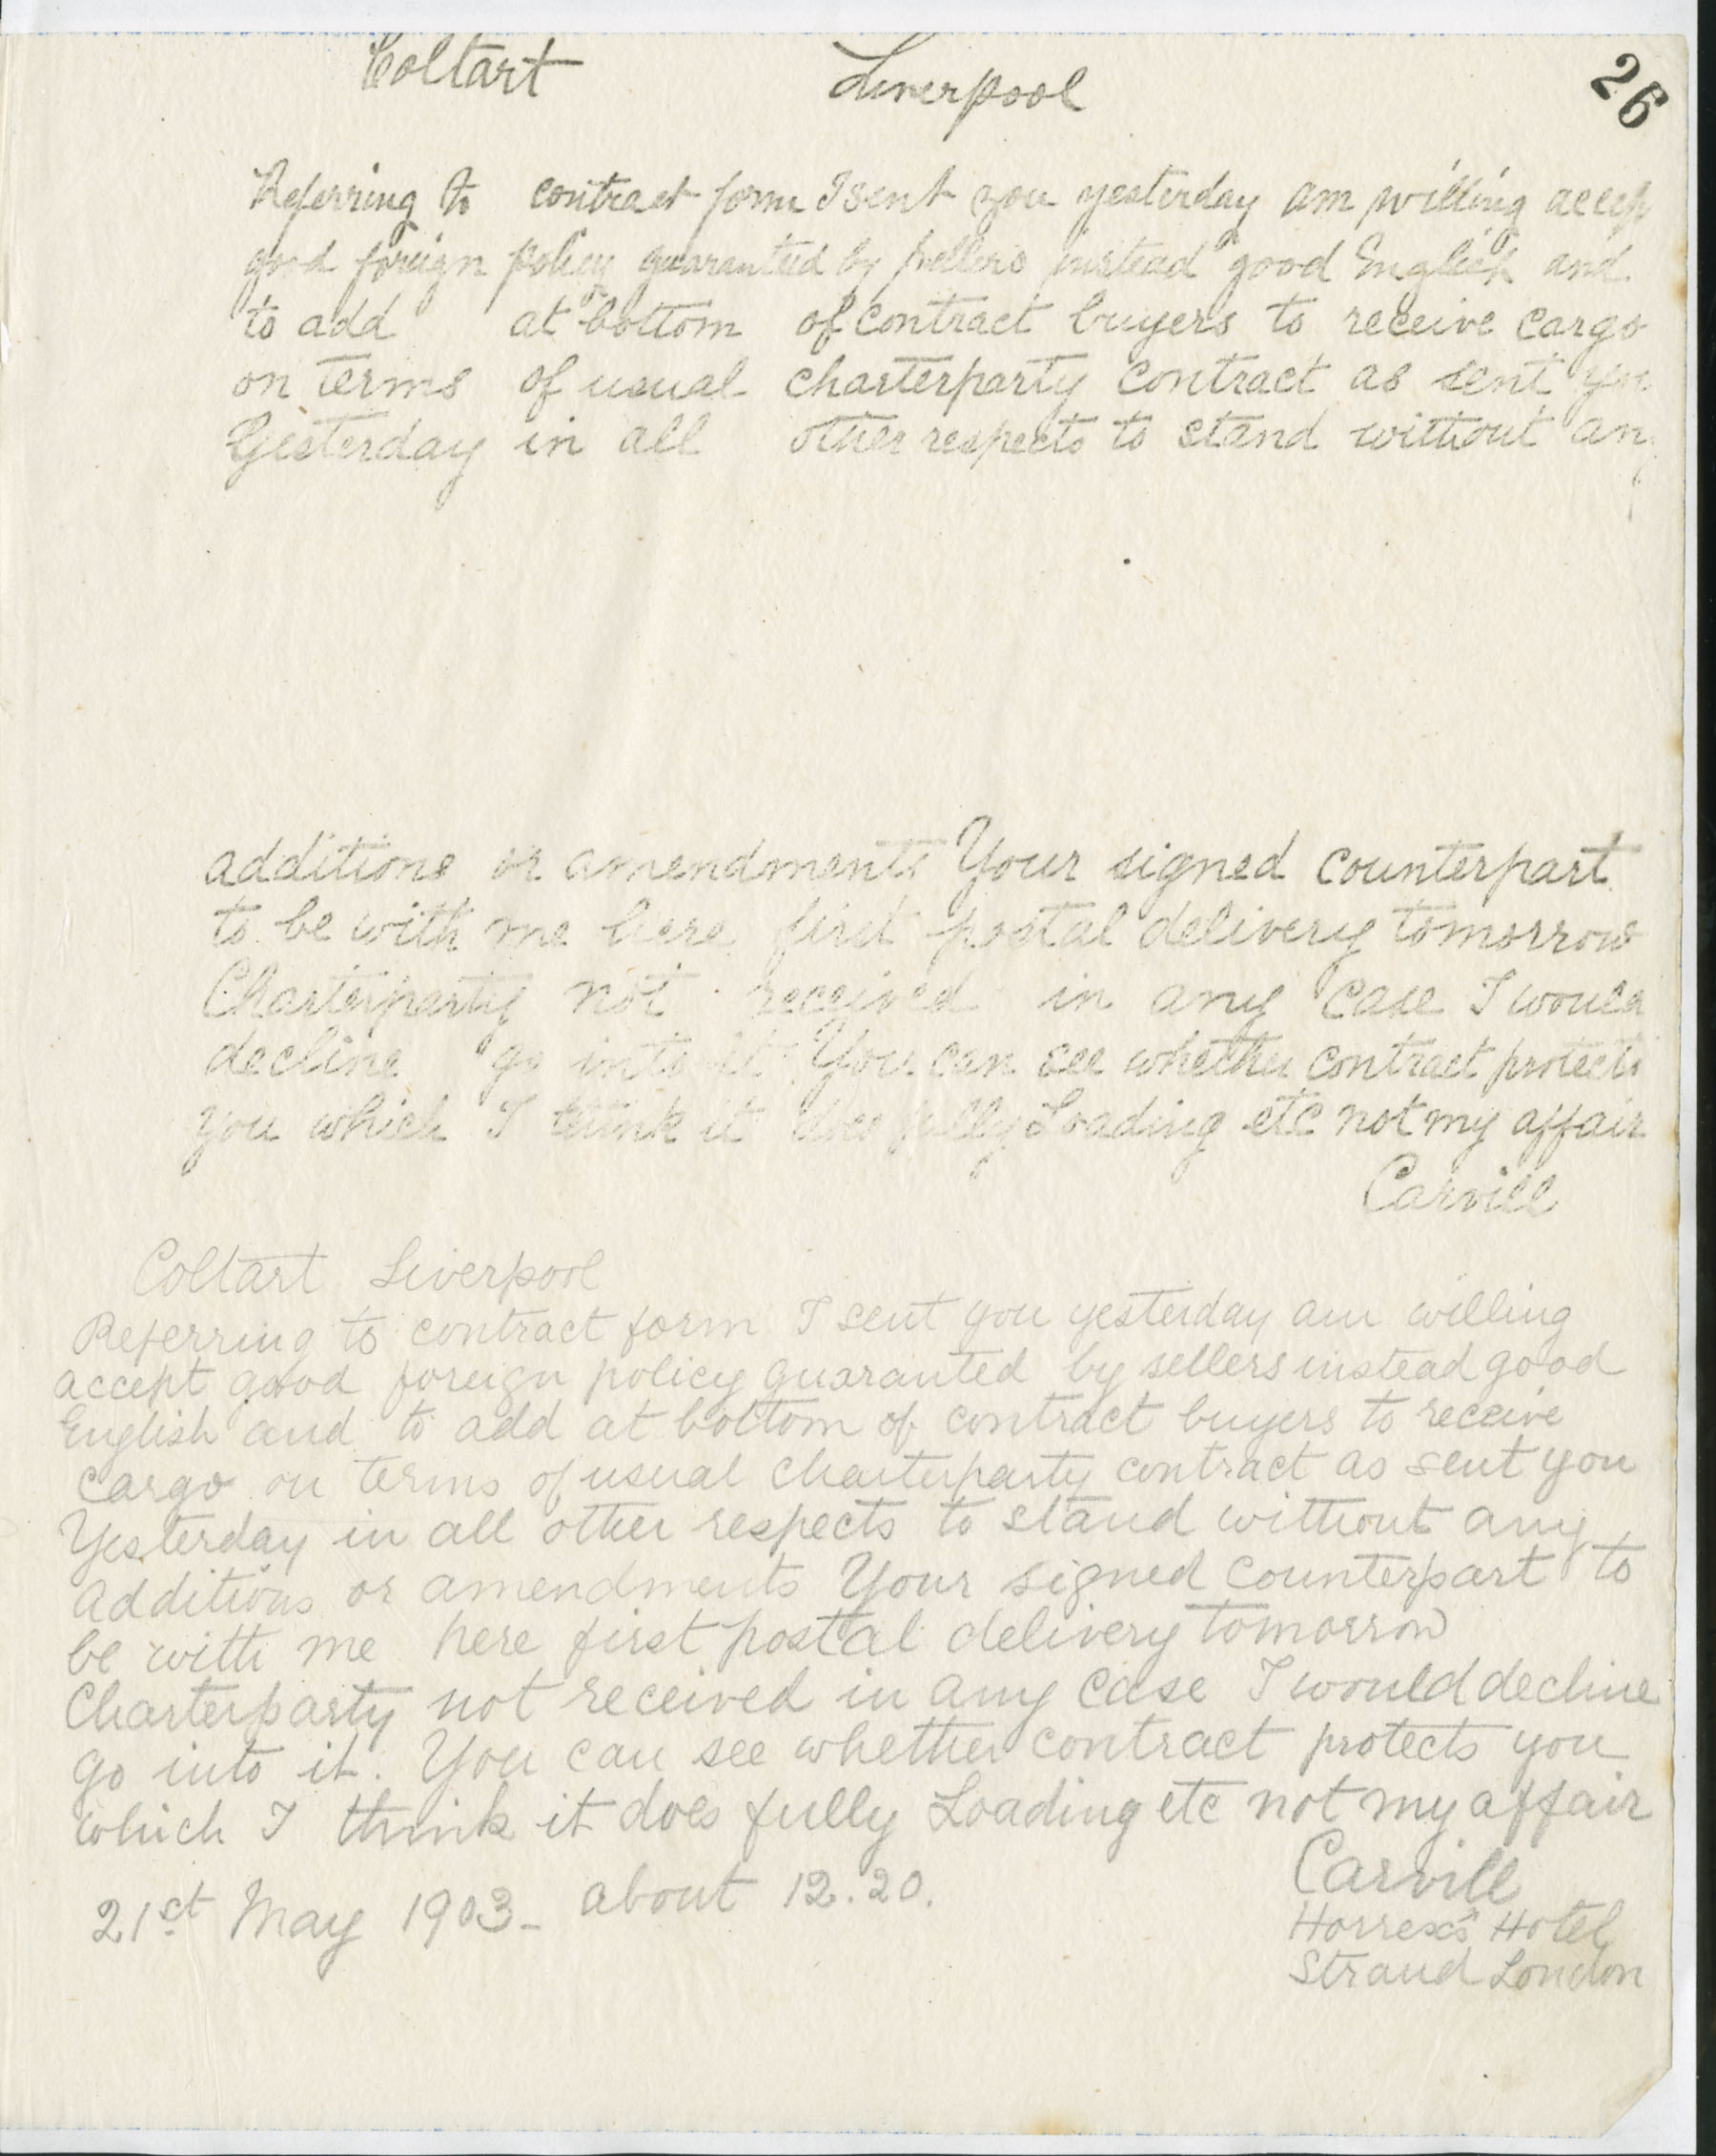 Coltart Liverpool
26
Referring to contract form I sent you yesterday am willing accep
good foreign policy guaranteed by sellers instead good English and
to add at bottom of contract buyers to receive cargo
on terms of usual charterparty contract as sent you
Yesterday in all other respects to stand without any
additions or amendments Your signed counterpart
to be with me here first postal delivery tomorrow
Charterparty not received in any case I would
decline go into it You can see whether contract protects
you which I think it does fully Loading etc not my affair
Carvill
Coltart Liverpool
Referring to contract form I sent you yesterday am willing
accept good foreign policy guaranted by sellers instead good
English and to add at bottom of contract buyers to receive
cargo on terms of usual charterparty contract as sent you
Yesterday in all other respects to stand without any
additions or amendments Your signed counterpart to
be with me here first postal delivery tomorrow
Charterparty not received in any case I would decline
go into it. You can see whether contract protects you
which I think it does fully Loading etc not my affair
Carvill
Horrex's Hotel
Strand London
21st May 1903 - about 12.20.